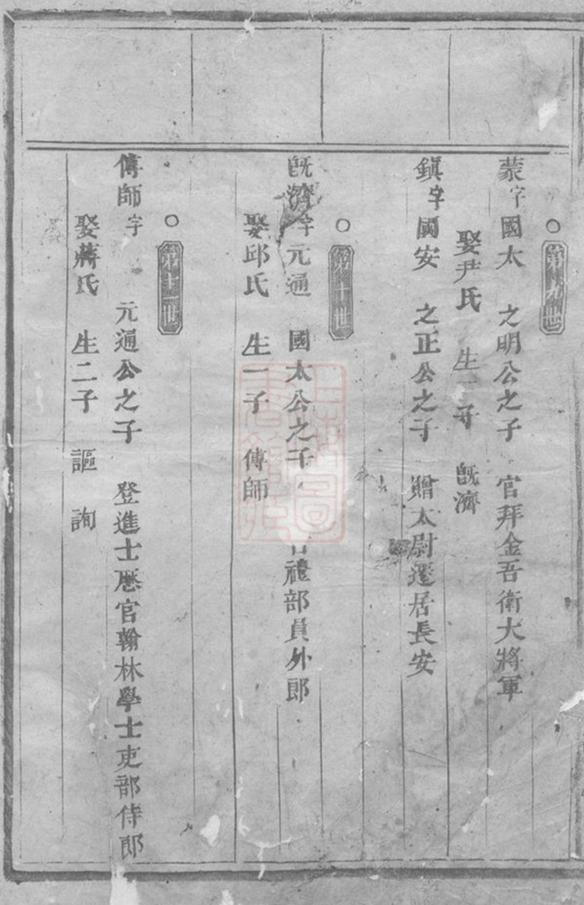 第十九世
蒙字國太 之明公之子 官拜金吾衛大將軍
娶尹氏 生一子 旣濟
鎮字國安 之正公之子 贈太尉遷居長安
第二十世
旣濟字元通 國太公之子 官禮部員外郎
娶邱氏 生一子 傳師
第廿一世
傳師字 元通公之子 登進士歷官翰林學士吏部侍郎
娶蔣氏 生二子 謳 詢